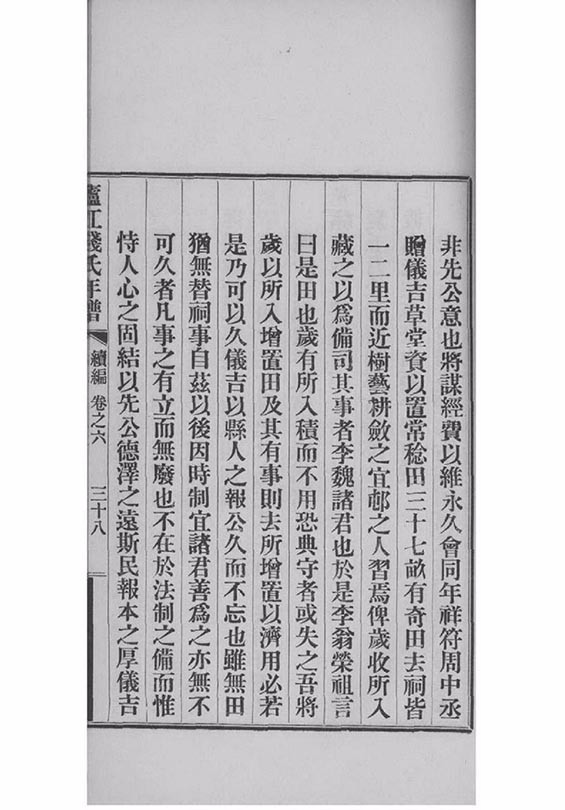 非先公意也將謀經費以維永久會同年祥符周中丞
贈儀吉草堂資以置常稔田三十七畝有奇田去祠皆
一二里而近樹藝耕斂之宜邨之人習焉俾歲收所入
藏之以為備司其事者李魏諸君也於是李翁榮祖言
曰是田也歲有所入積而不用恐典守者或失之吾將
歲以所入增置田及其有事則去所增置以濟用必若
是乃可以久儀吉以縣人之報公久而不忘也雖無田
猶無替祠事自茲以後因時制宜諸君善為之亦無不
可久者凡事之有立而無廢也不在於法制之備而惟
恃人心之固結以先公德澤之遠斯民報本之厚儀吉
廬江錢氏年譜 續編 卷之六 三十八